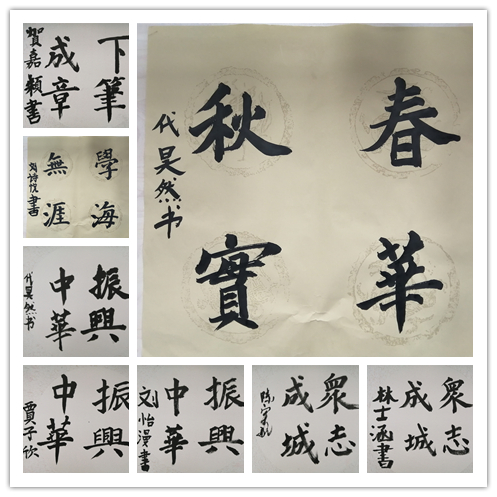 下筆
成章
賀嘉穎書
春華
秋實
代昊然书
學海
無涯
振興
中華
代昊然书
振興
中華
賈子欣
振興
中華
刘怡漫書
衆志
成城
衆志
成城
林士涵書